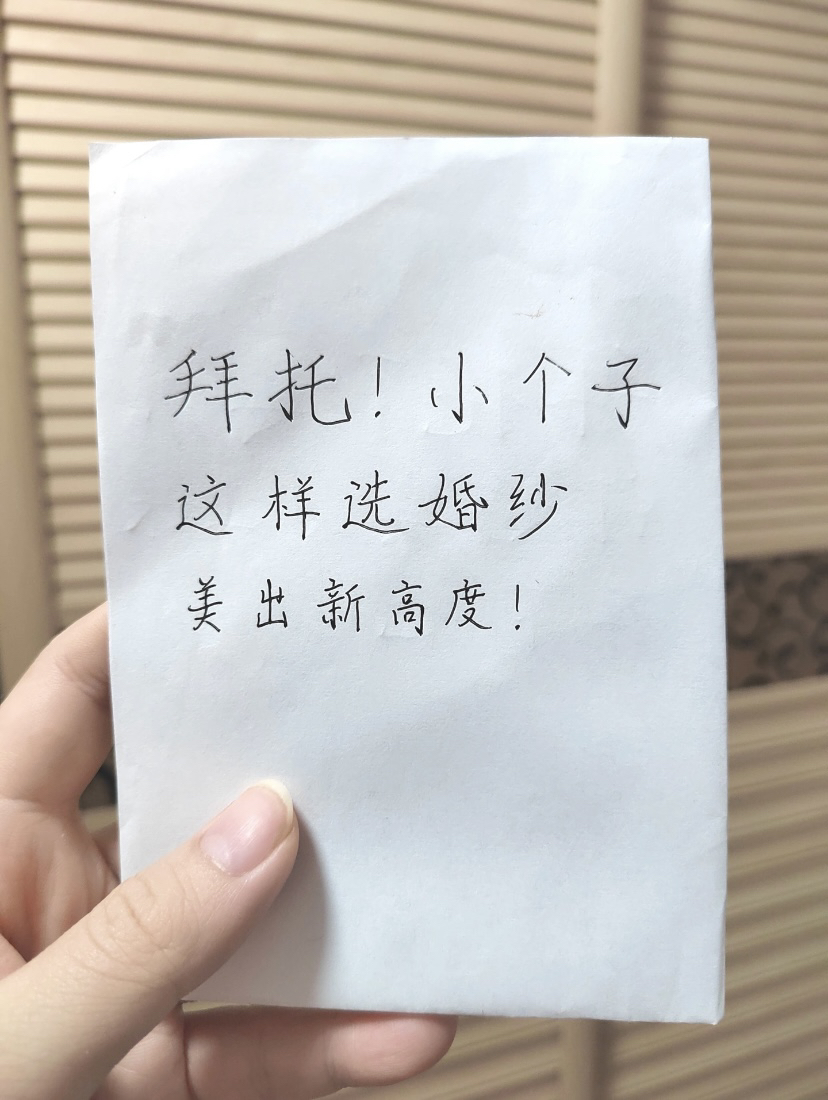 拜托!小个子
这样选婚纱
美出新高度!